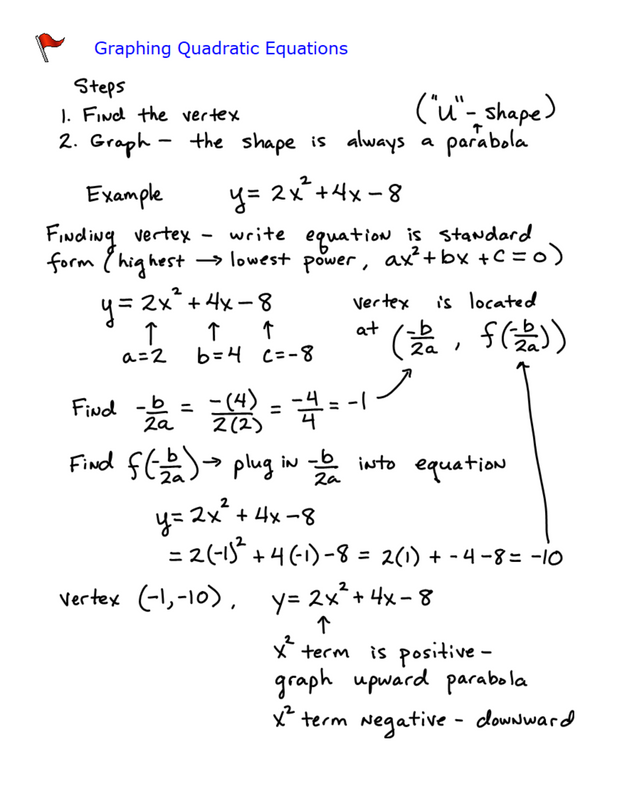 Graphing Quadratic Equations
Steps
1. Find the vertex
("U"- shape)
2. Graph – the shape is always a parabola
↑
Example y = 2x² + 4x – 8
Finding vertex – write equation is standard
form (highest → lowest power, ax² + bx + c = 0)
y = 2x² + 4x – 8
↑ ↑ ↑
a=2 b=4 c=-8
vertex is located
at (-b/2a, f(-b/2a))
Find -b/2a = -(4)/2(2) = -4/4 = -1
Find f(-b/2a) → plug in -b/2a into equation
y = 2x² + 4x – 8
= 2(-1)² + 4(-1) – 8 = 2(1) + -4 – 8 = -10
vertex (-1,-10), y = 2x² + 4x – 8
↑
x² term is positive –
graph upward parabola
x² term negative – downward